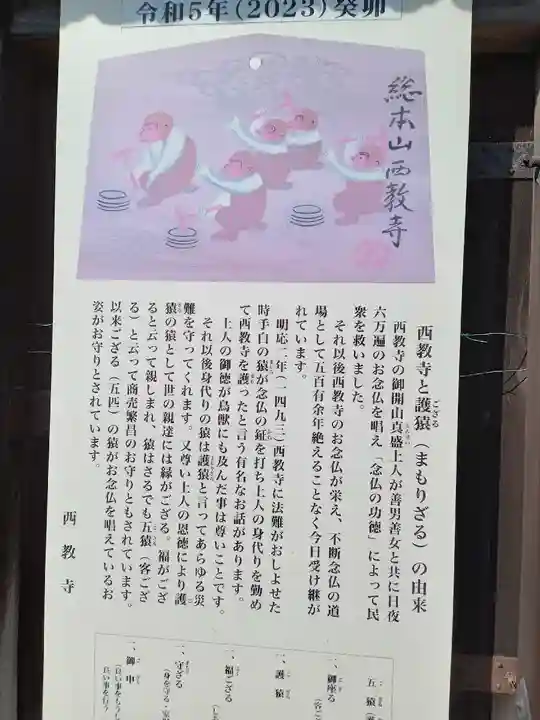 令和5年(2023)癸卯
総本山西教寺
西教寺と護猿（まもりざる）の由来
西教寺の御開山真盛上人が善男善女と共に日夜
六万遍のお念仏を唱え「念仏の功徳」によって民
衆を救いました。
それ以後西教寺のお念仏が栄え、不断念仏の道
場として五百有余年絶えることなく今日受け継が
れています。
明応二年（一四九三）西教寺に法難がおしよせた
時手白の猿が念仏の鉦を打ち上人の身代りを勤め
て西教寺を護ったと言う有名なお話があります。
上人の御徳が鳥獣にも及んだ事は尊いことです。
それ以後身代りの猿は護猿と言ってあらゆる災
難を守ってくれます。又尊い上人の恩徳により護
猿の猿として世の親達には縁がござる。福がござ
ると云って親しまれ、猿はさるでも五猿（客ござ
る）と云って商売繁昌のお守りともされています。
以来ござる（五匹）の猿がお念仏を唱えているお
姿がお守りとされています。
西教寺
五猿
一、御座る
一、護猿
一、福ござる
一、守ざる
一、御申